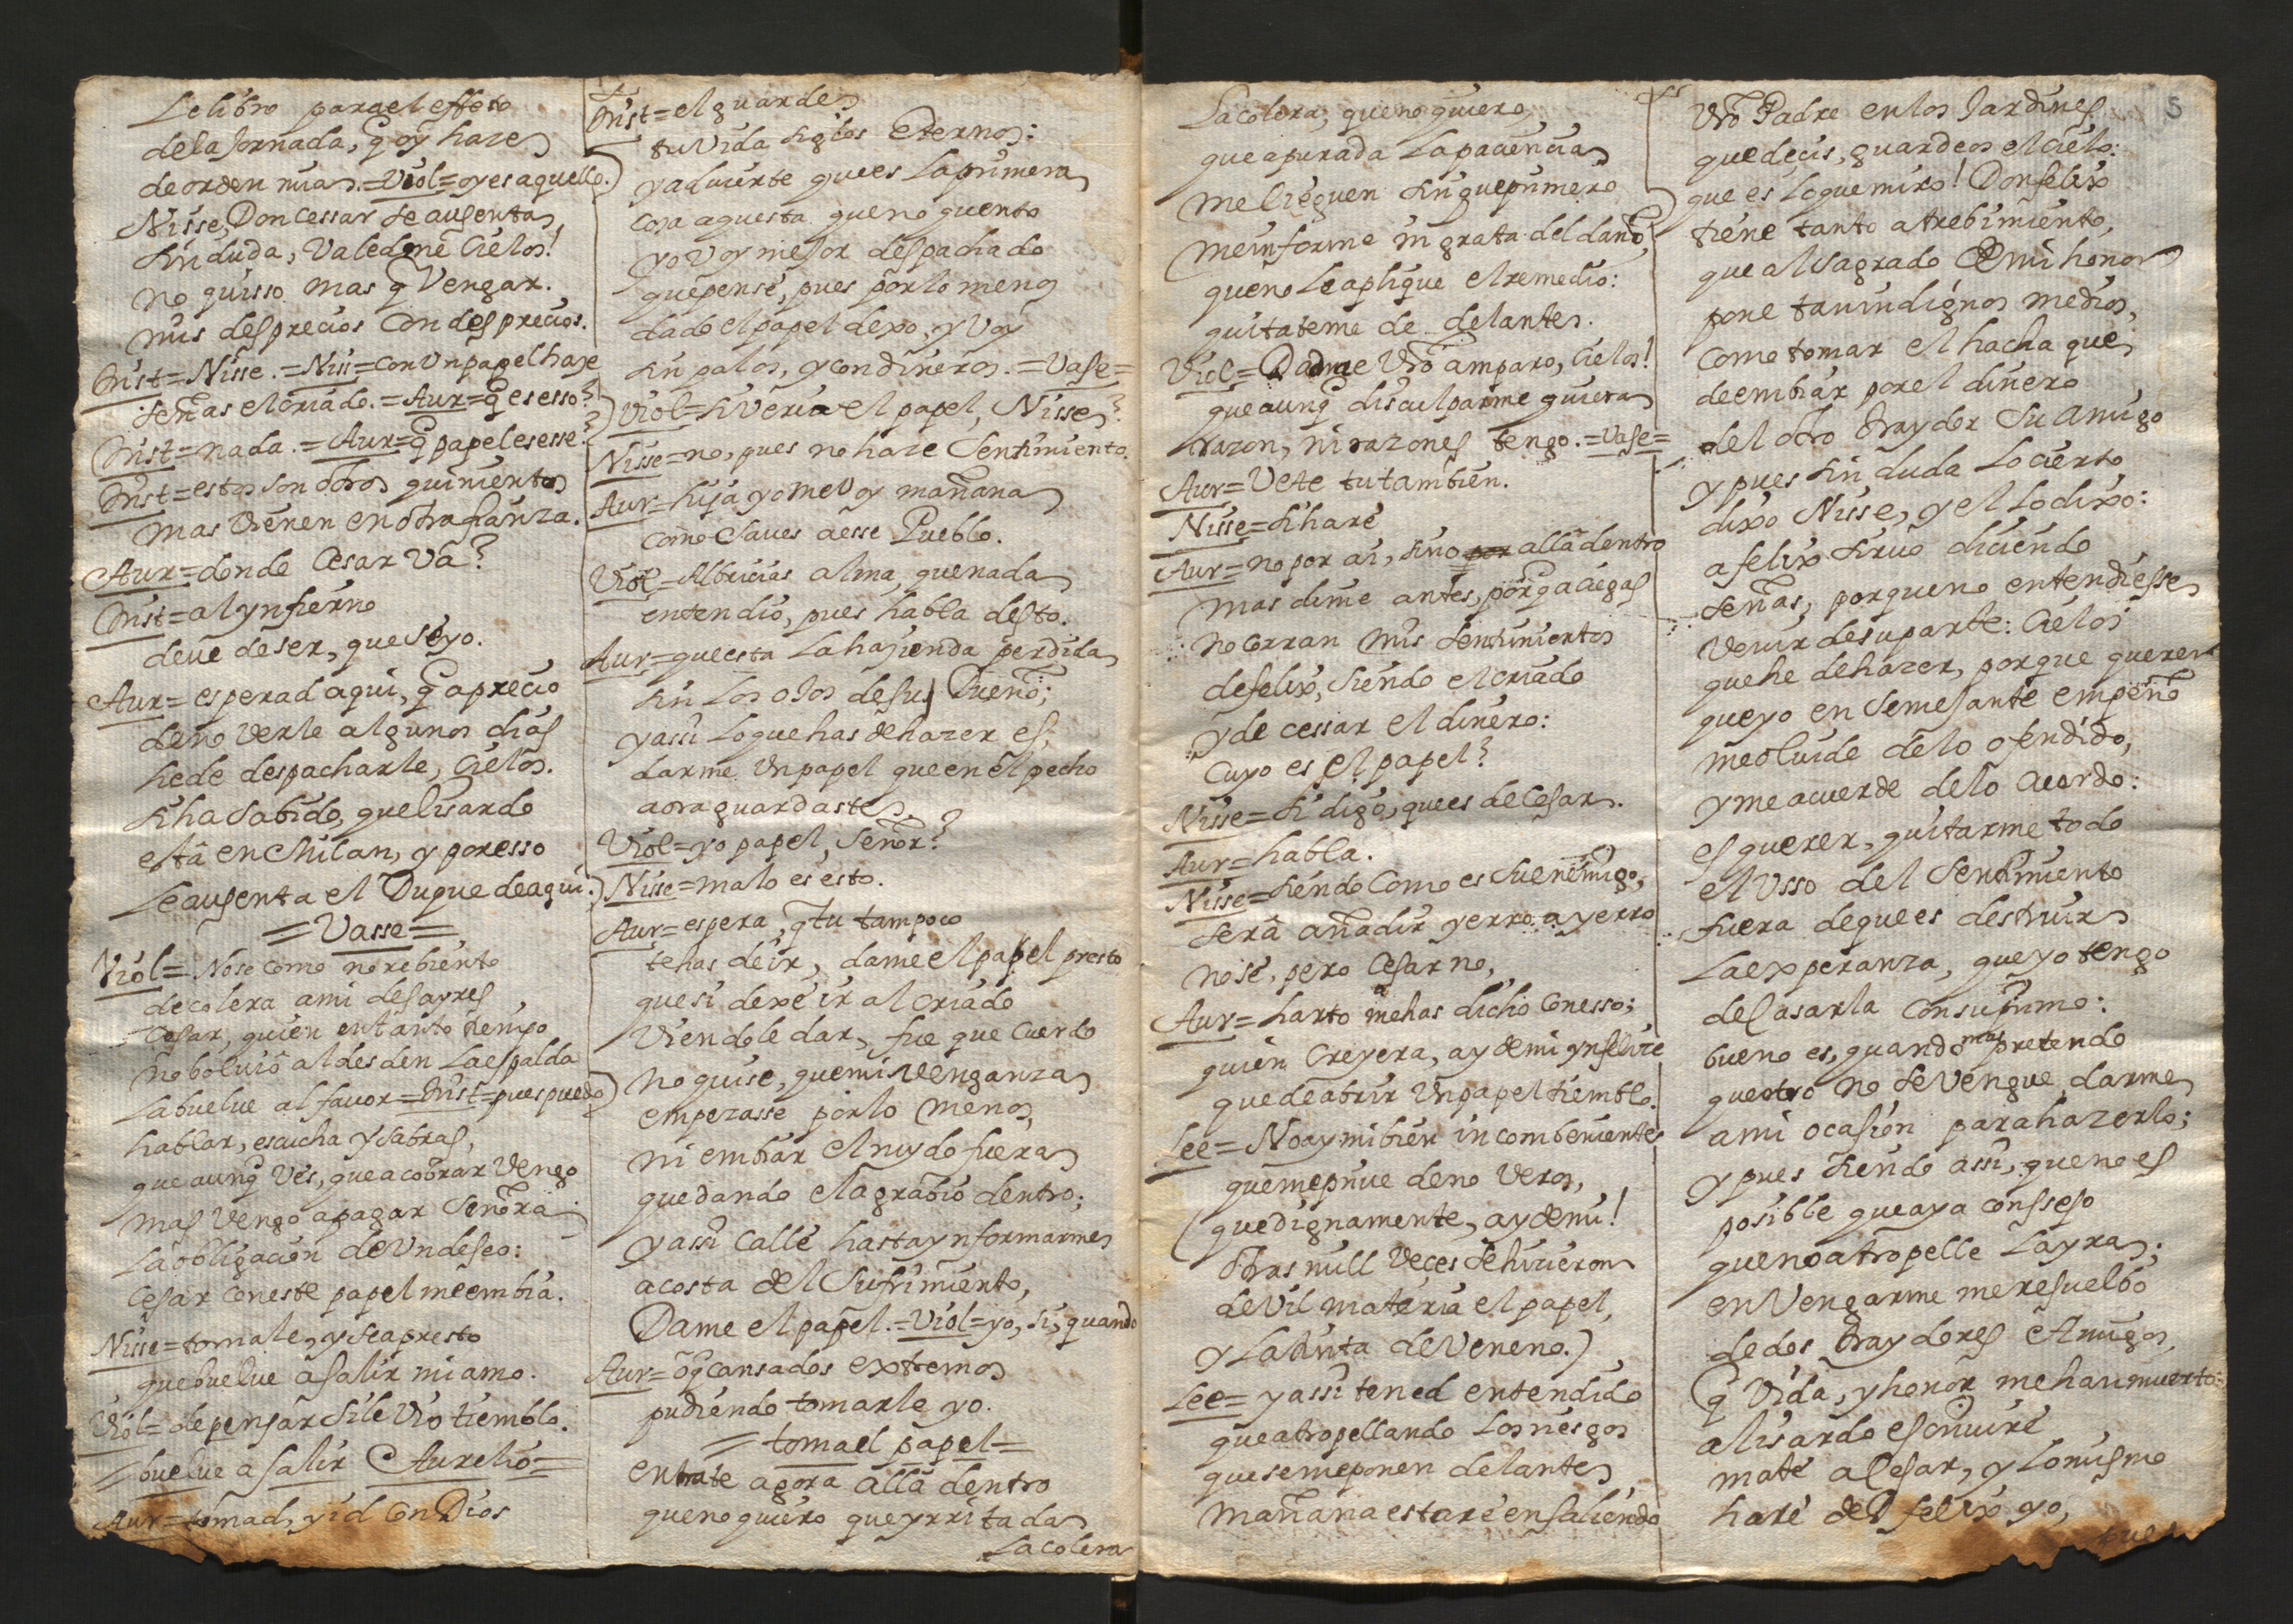 Le libro para el effeto
de la Jornada, q̃ oy haze
de orden mia. =Viol= oyes aquello.
Nisse, Don Cessar se ausenta
sin duda, Valedme Cielos!
no quisso mas q̃ Vengar.
mis desprecios Con desprecios.
Crist= Nisse. =Niss= con Vn papel haze
señas el criado. =Aur= q̃ es esso?
Crist= nada. =Aur= q̃ papel es esse?
Crist= estos son otros quinientos
mas vienen en otra fianza.
Aur= donde Cesar Va?
Crist= al ynfierno
deue de ser, que se yo.
Aur= esperad aqui, q̃ a precio
de no verle algunos dias
he de despacharle, Cielos.
si ha sabido, que lisardo
està en Milan, y por esso
Le ausenta el Duque de aqui.
=Vasse=
Viol= No se como no rebiento
de colera a mi desayres
Cesar, quien en tanto tiempo
no boluiò al desden La espalda
La buelue al fauor =Crist= pues puedo
hablar, escucha y sabras,
que aunq̃ Ves, que a cobrar Vengo
mas Vengo a pagar Señora
La obligacion de Vn deseo:
Cesar con este papel me embia.
Nisse= tomale, y sea presto
que buelue a salir mi amo.
Viol= de pensar si le Vio tiemblo.
=buelue a salir Aurelio=
Aur= tomad, y id Con Dios
Crist= el guarde
tu Vida siglos eternos:
y aduierte que es La primera
cosa aquesta que no quento
yo Voy mejor despachado
que pensè, pues por lo menos
dado el papel dexo, y Voy
sin palos, y con dineros. =Vase=
Viol= si veria el papel, Nisse?
Nisse= no, pues no haze Sentimiento.
Aur= hija yo me Voy mañana
como saues a esse Pueblo.
Viol= Albricias alma, que nada
entendio, pues habla desto.
Aur= que esta La hazienda perdida
sin Los ojos de sus Dueño;
y assi Lo que has de hazer es,
darme Vn papel que en el pecho
aora guardaste.
Viol= yo papel, Señor?
Nisse= malo es esto.
Aur= espera, q̃ tu tampoco
te has de ir, dame el papel presto
que si dexè ir al criado
Viendole dar, fue que Cuerdo
no quise, que mi Venganza
empezasse por lo menos
ni embiar el ruydo fuera
quedando el agrabio dentro;
y assi Callè hasta ynformarme
a costa del Sufrimiento,
Dame el papel. =Viol= yo, si, quando
Aur= o q̃ cansados extremos
pudiendo tomarle yo.
=toma el papel=
entrate agora allà dentro
que no quiero que yrritada
La colera
La colera, que no quiero
que apurada La paciencia
me lieguen sin que primero
me informe ingrata del daño,
que no Le aplique el remedio:
quitateme de delante.
Viol= Dadme Vrõ amparo, Cielos!
que aunq̃ disculparme quiera
razon, ni razones tengo. =Vase=
Aur= Vete tu tambien.
Nisse= si harè
Aur= no por ai, sino por allà dentro
mas dime antes, porq̃ a ciegas
no corran mis sentimientos
de felix, siendo el criado
y de cessar el dinero:
Cuyo es el papel?
Nisse= si digo, que es de Cesar.
Aur= habla.
Nisse= siendo Como es su enemigo,
serà añadir yerro a yerro
no se, pero Cesar no,
Aur= harto me has dicho Con esso;
quien Creyera, ay de mi ynfelize
que de abrir Vn papel tiemblo.
Lee= No ay mi bien incombeniente
que me priue de no Veros,
(que dignamente, ay de mi!
otras mill Veces se hizieron
de Vil materia el papel,
y La tinta de Veneno.)
Lee= y assi tened entendido
que atropellando Los riesgos
que se me ponen delante
mañana estarè en saliendo
5
Vrõ Padre en los Jardines
que decis, guardeos el Cielo:
que es Lo que miro! Don felix
tiene tanto atrebimiento,
que al sagrado de mi honor
pone tan indignos medios,
como tomar el hacha que
de embiar por el dinero
del otro traydor Su Amigo
y pues sin duda Lo cierto
dixo Nisse, y el Lo dixo:
a felix siruio diciendo
señas, porque no entendiesse
venir de su parte: Cielos
que he de hazer, porque querer
que yo en semejante empeño
me oluide de lo ofendido,
y me acuerde de lo Cuerdo:
es querer, quitarme todo
el Vsso del Sentimiento
fuera de que es destruir
La experanza, que yo tengo
de Casarla Con su primo:
bueno es, quando mas pretendo
que otro no se vengue, darme
a mi ocasion para hazerlo;
y pues siendo assi, que no es
posible que aya consejo
que no atropelle La yra;
en Vengarme me resueluo
de dos traydores Amigos,
q̃ Vida, y honor me han muerto:
a lisardo escriuirè
mate a Cesar, y Lo mismo
harè de D felix yo,
pues